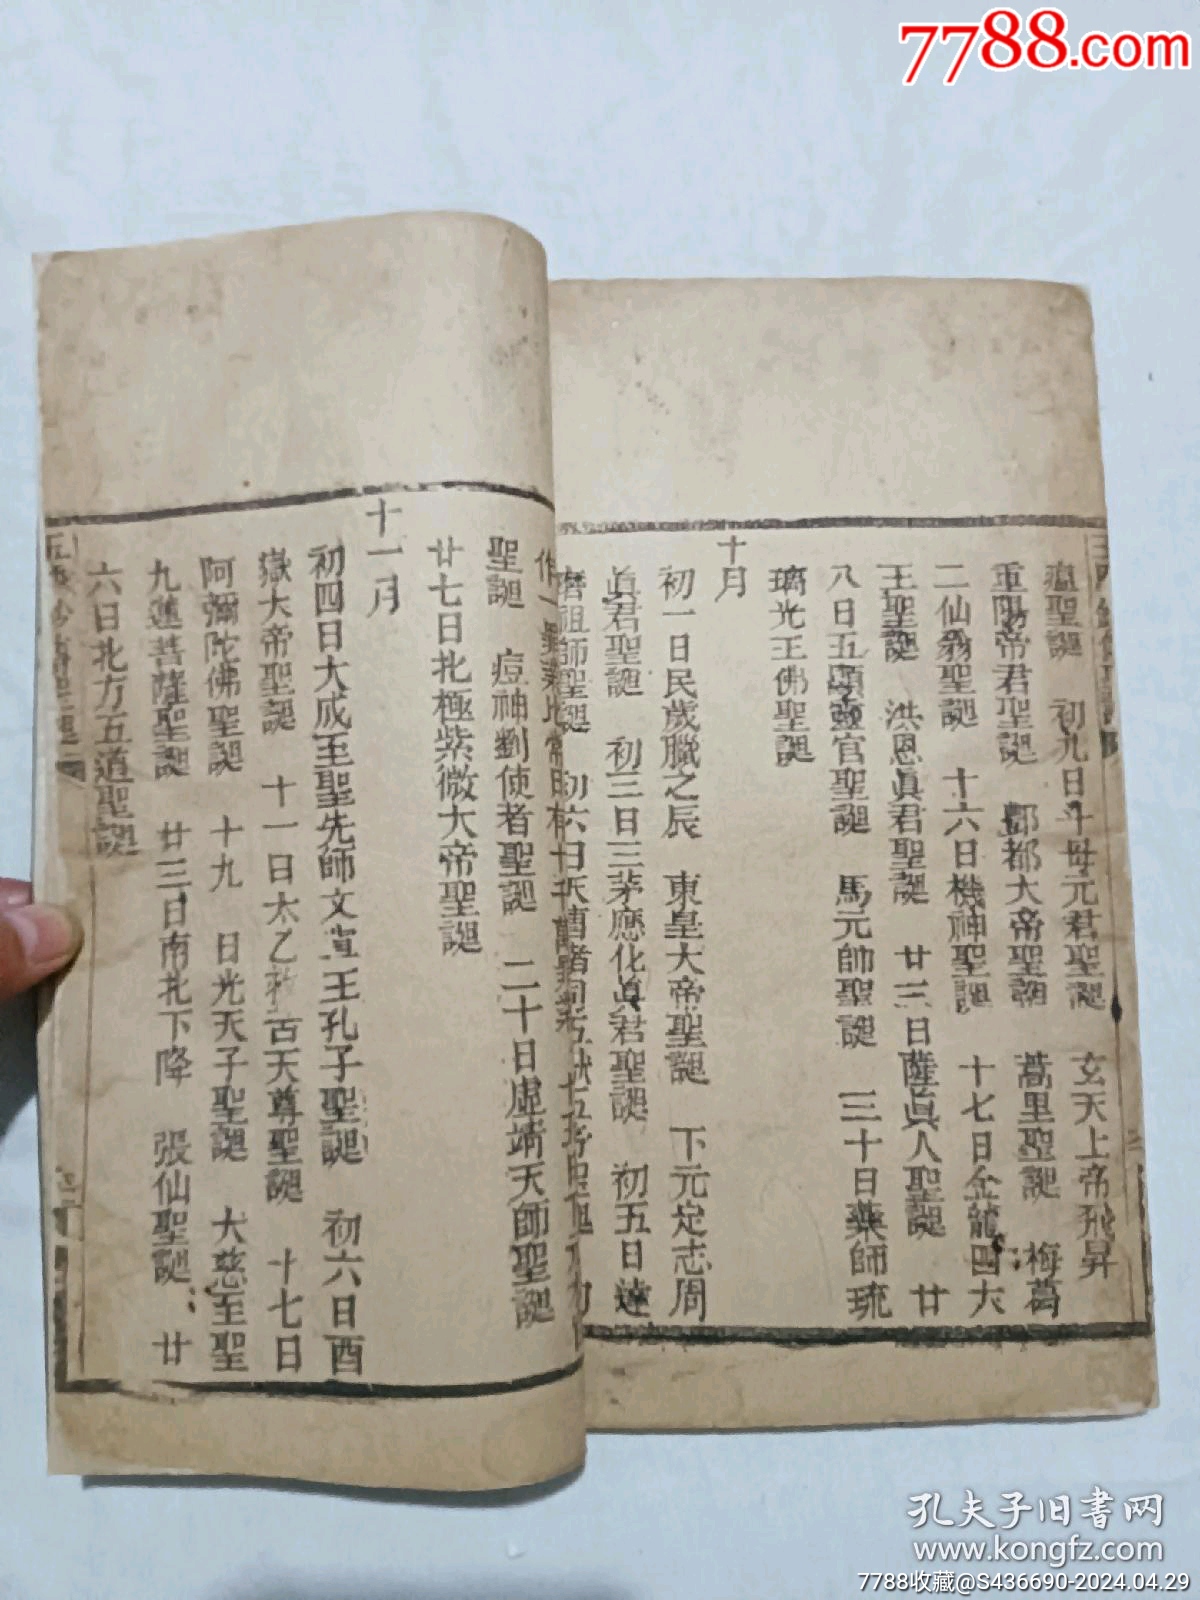 7788.com
瘟聖誕　初九日斗母元君聖誕　玄天上帝飛昇
重陽帝君聖誕　酆都大帝聖誕　蒿里聖誕　梅葛
二仙翁聖誕　十六日機神聖誕　十七日金龍四大
王聖誕　洪恩眞君聖誕　廿三日薩眞人聖誕　廿
八日五顯靈官聖誕　馬元帥聖誕　三十日藥師琉
璃光王佛聖誕
十月
初一日民歲臘之辰　東皇大帝聖誕　下元定志周
眞君聖誕　初三日三茅應化眞君聖誕　初五日達
磨祖師聖誕　初六日天曹諸司五嶽五帝聖誕
聖誕　痘神劉使者聖誕　二十日虛靖天師聖誕
廿七日北極紫微大帝聖誕
十一月
初四日大成至聖先師文宣王孔子聖誕　初六日酉
嶽大帝聖誕　十一日太乙救苦天尊聖誕　十七日
阿彌陀佛聖誕　十九日光天子聖誕　大慈至聖
九蓮菩薩聖誕　廿三日南北下降　張仙聖誕　廿
六日北方五道聖誕
孔夫子旧书网
www.kongfz.com
7788收藏@S436690-2024.04.29